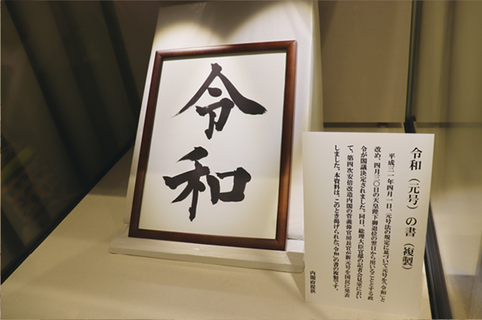 令和
令和（元号）の書（複製）
平成三一年四月一日、元号法の規定に基づいて元号を「令和」と
改め、四月三〇日の天皇陛下御退位の翌日から用いることとする政
令が閣議決定されました。同日、総理大臣官邸の記者会見室におい
て、第四次安倍改造内閣の菅義偉官房長官が新元号を国民に発表
しました。本資料は、このとき掲げられた「令和」の書の複製です。
内閣府